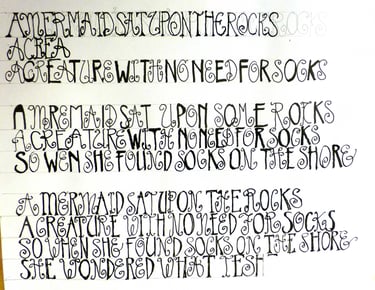 AMERMAID SAT UPON THE ROCKS ROCKS
A CREA
A CREATURE WITH NO NEED FOR SOCKS
A MREMAID SAT UPON SOME ROCKS
A CREATURE WITH NO NEED FOR SOCKS
SO WEN SHE FOUND SOCKS ON THE SHORE
A MERMAID SAT UPON THE ROCKS
A CREATURE WITH NO NEED FOR SOCKS
SO WHEN SHE FOUND SOCKS ON THE SHORE
SHE WONDERED WHAT